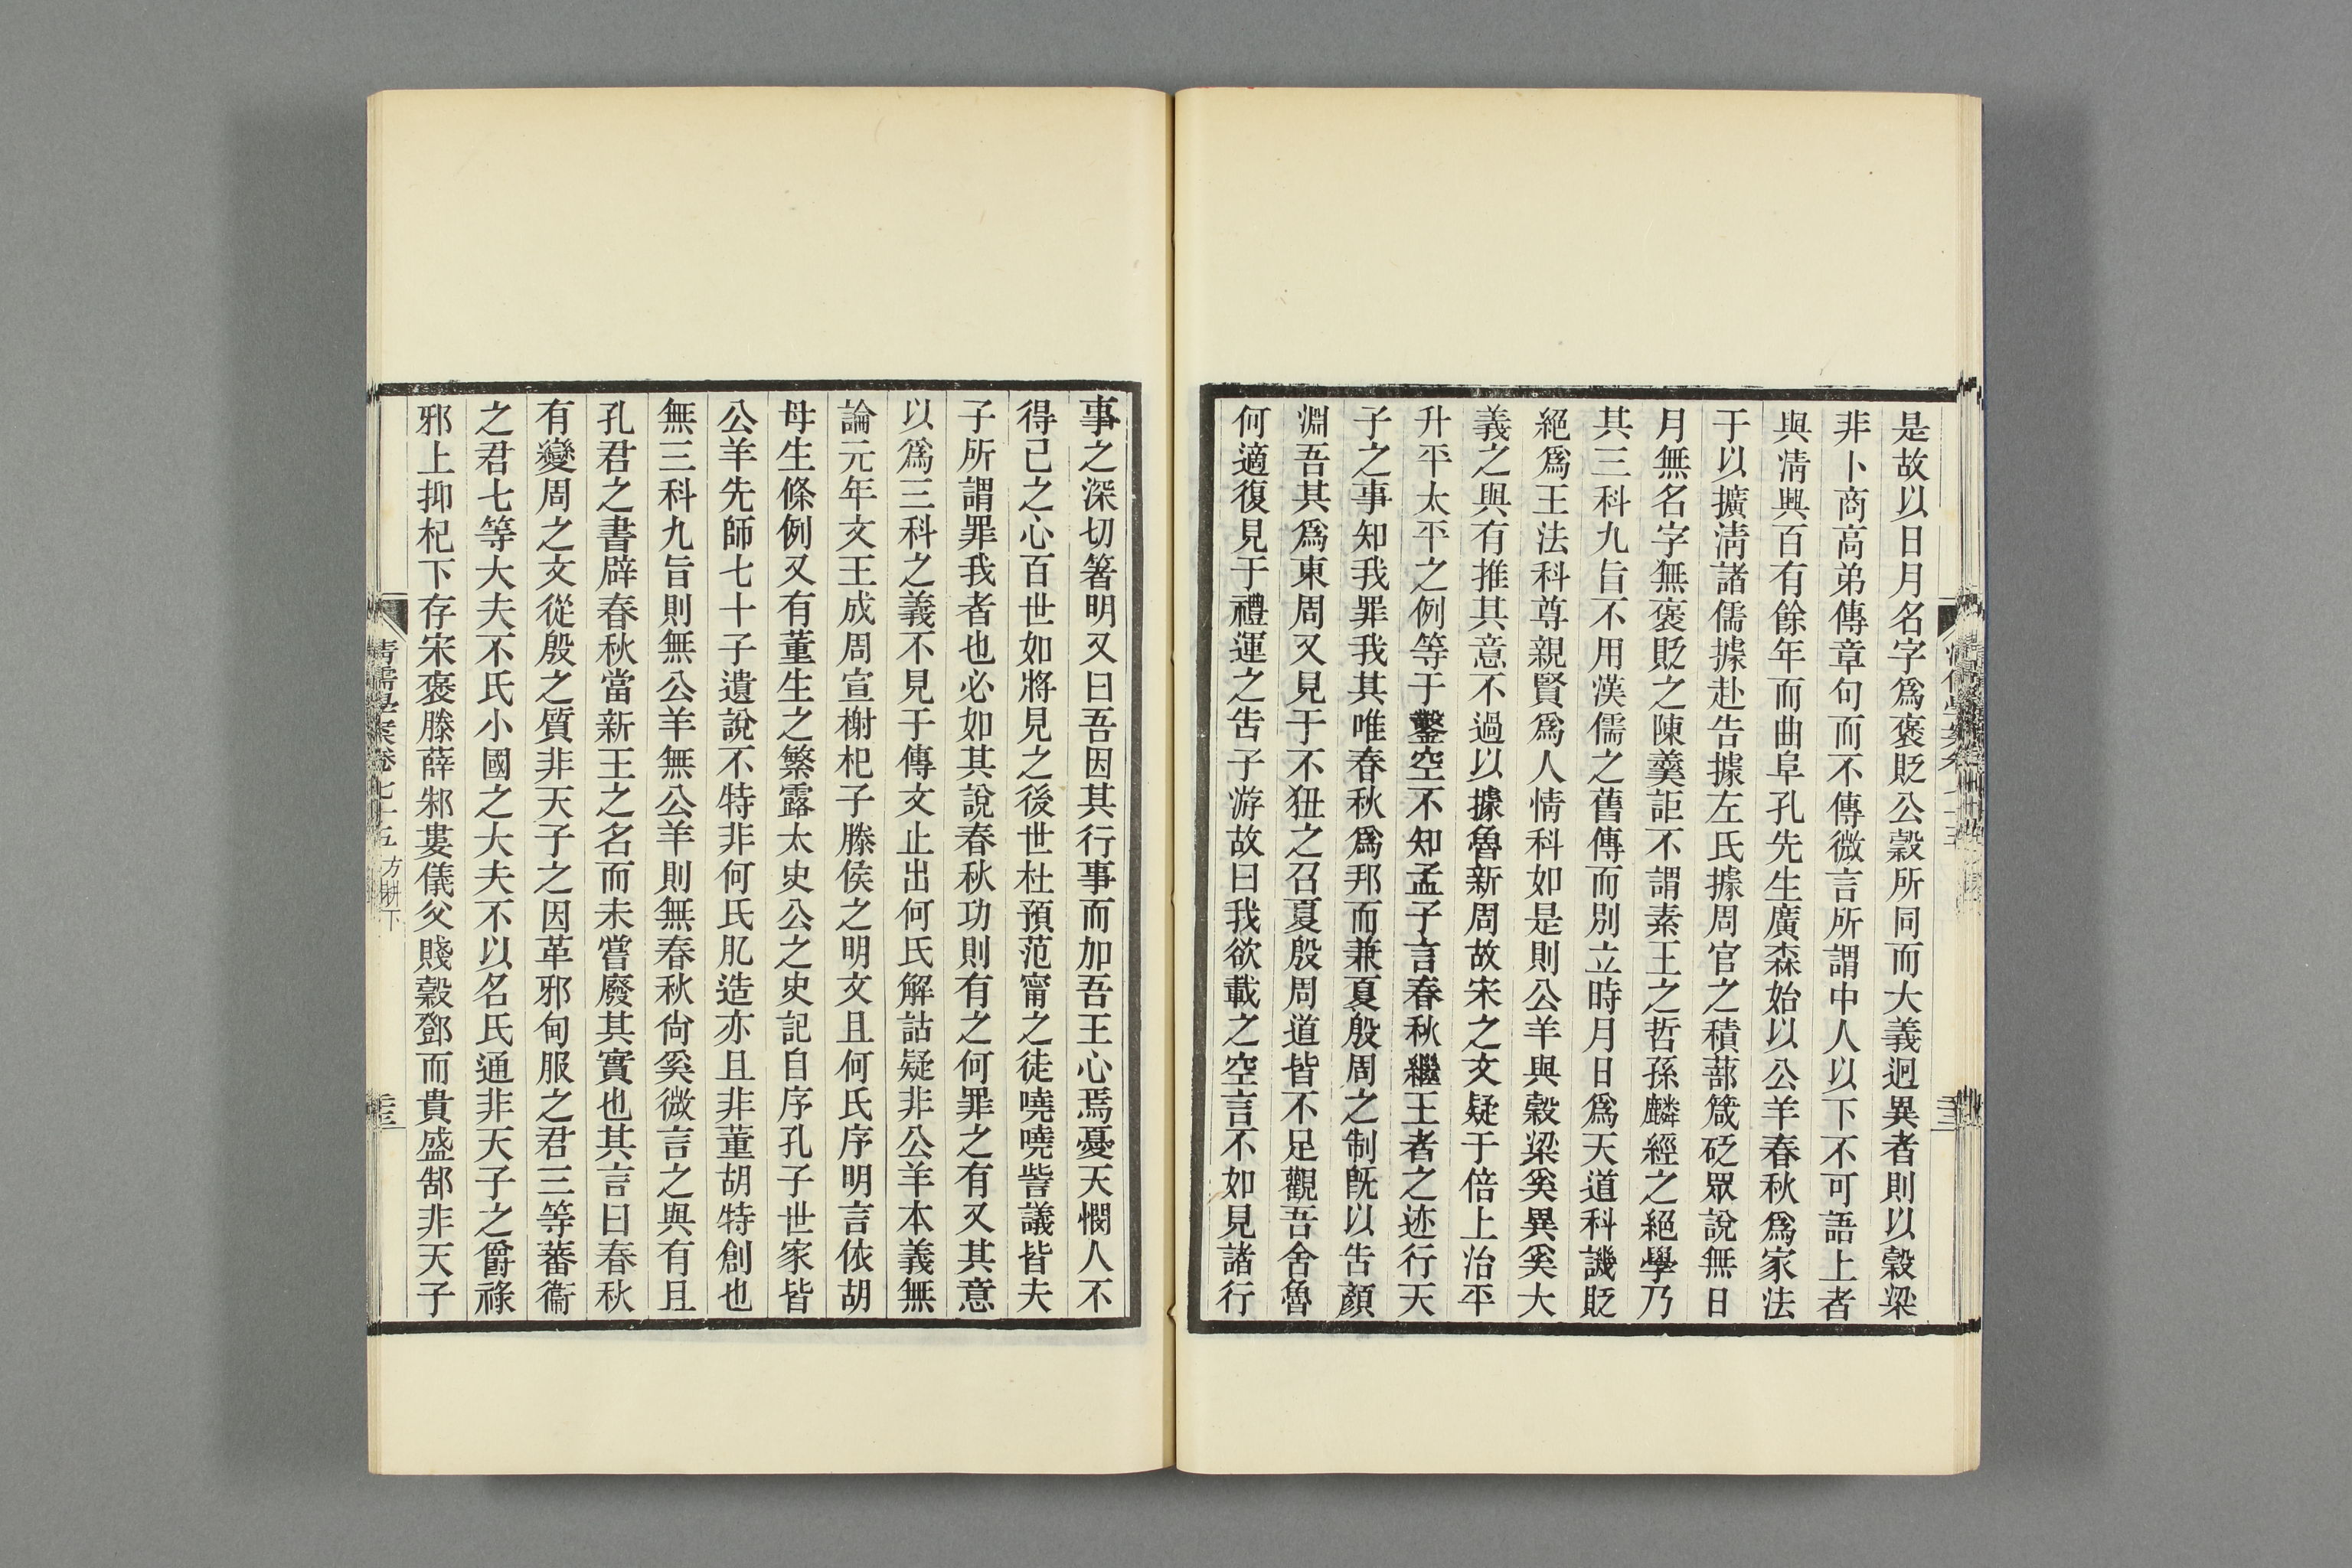 是故以日月名字爲褒貶公穀所同而大義迥異者則以穀梁
非卜商高弟傳章句而不傳微言所謂中人以下不可語上者
與清興百有餘年而曲阜孔先生廣森始以公羊春秋爲家法
于以擴淸諸儒據赴告據左氏據周官之積蔀箴砭眾說無日
月無名字無褒貶之陳羹詎不謂素王之哲孫麟經之絕學乃
其三科九旨不用漢儒之舊傳而別立時月日爲天道科譏貶
絕爲王法科尊親賢爲人情科如是則公羊與穀梁奚異奚大
義之與有推其意不過以據魯新周故宋之文疑于倍上治平
升平太平之例等于鑿空不知孟子言春秋繼王者之迹行天
子之事知我罪我其唯春秋爲邦而兼夏殷周之制旣以告顏
淵吾其爲東周又見于不狃之召夏殷周道皆不足觀吾舍魯
何適復見于禮運之告子游故曰我欲載之空言不如見諸行
事之深切箸明又曰吾因其行事而加吾王心焉憂天憫人不
得已之心百世如將見之後世杜預范甯之徒嘵嘵訾議皆夫
子所謂罪我者也必如其說春秋功則有之何罪之有又其意
以爲三科之義不見于傳文止出何氏解詁疑非公羊本義無
論元年文王成周宣榭杞子滕侯之明文且何氏序明言依胡
母生條例又有董生之繁露太史公之史記自序孔子世家皆
公羊先師七十子遺說不特非何氏肊造亦且非董胡特創也
無三科九旨則無公羊無公羊則無春秋尙奚微言之與有且
孔君之書辟春秋當新王之名而未嘗廢其實也其言曰春秋
有變周之文從殷之質非天子之因革邪甸服之君三等蕃衞
之君七等大夫不氏小國之大夫不以名氏通非天子之爵祿
邪上抑杞下存宋褒滕薛邾婁儀父賤穀鄧而貴盛郜非天子
清儒學案卷七十五 方耕下